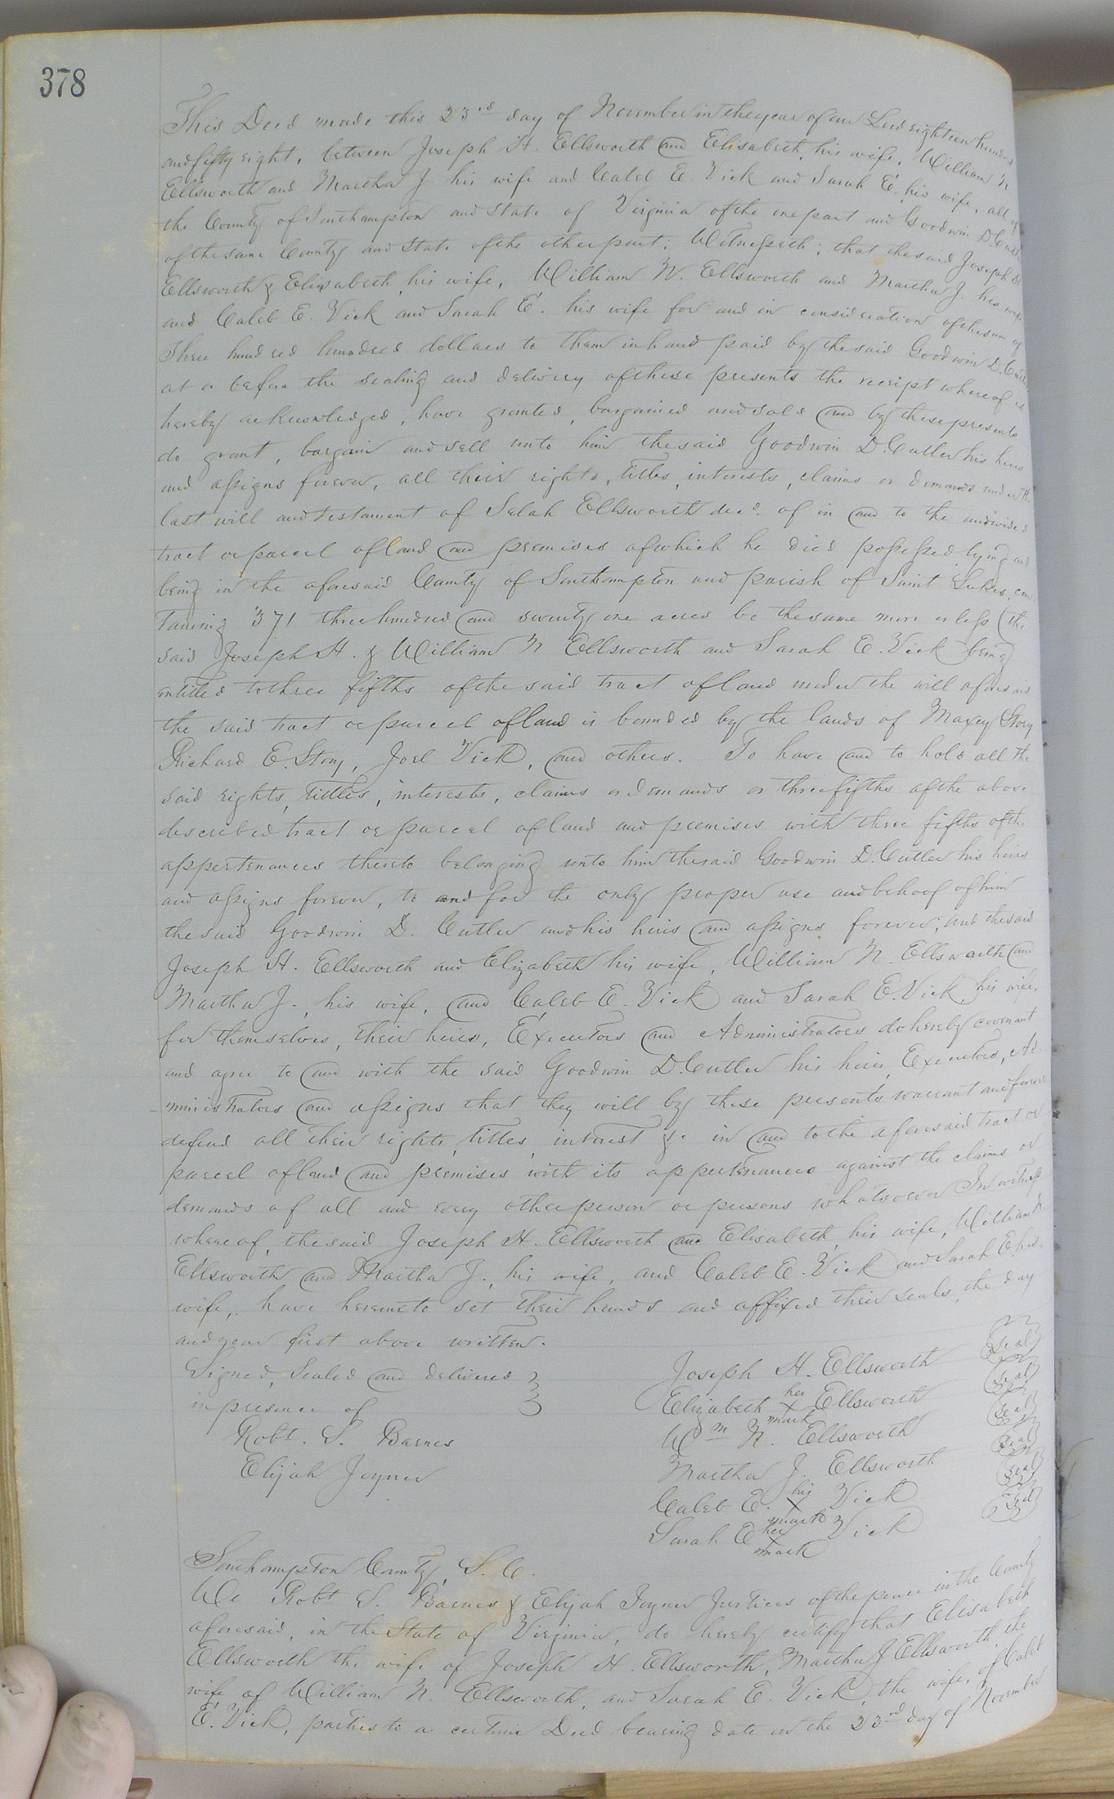 378
This Deed made this 23rd day of November in the year of our Lord eighteen hundred
and fifty eight, between Joseph H. Ellsworth and Elisabeth, his wife, William N
Ellsworth and Martha J his wife and Caleb E. Vick and Sarah E. his wife, all of
the County of Southampton and State of Virginia of the one part and Goodwin D. Cutler
of the same County and State of the other part; Witnesseth; that the said Joseph H
Ellsworth & Elisabeth his wife, William N. Ellsworth and Martha J. his wife
and Caleb E. Vick and Sarah E. his wife for and in consideration of the sum of
Three hundred hundred dollars to them in hand paid by the said Goodwin D. Cutler
at or before the sealing and delivery of these presents the receipt whereof is
hereby acknowledged, have granted, bargained and sold and by these presents
do grant, bargain and sell unto him the said Goodwin D. Cutler his heirs
and assigns forever, all their rights, titles, interests, claims or demands under the
last will and testament of Selah Ellsworth decd. of in and to the undivided
tract or parcel of land and premises of which he died possessed lying and
being in the aforesaid County of Southampton and parish of Saint Lukes, con
taining 371 three hundred and seventy one acres be the same more or less (the
said Joseph H. & William N Ellsworth and Sarah E. Vick being)
entitled to three fifths of the said tract of land under the will aforesaid
the said tract or parcel of land is bounded by the lands of Maxey Story
Richard E. Story, Joel Vick, and others. To have and to hold all the
said rights, tittles, interests, claims or demands or three fifths of the above
described tract or parcel of land and premises with three fifths of the
appertenances thereto belonging unto him the said Goodwin D. Cutler his heirs
and assigns forever, to and for the only proper use and behoof of him
the said Goodwin D. Cutler and his heirs and assigns forever; and the said
Joseph H. Ellsworth and Elizabeth his wife, William N. Ellsworth and
Martha J., his wife, and Caleb E. Vick and Sarah E. Vick his wife,
for themselves, their heirs, Executors and Administrators do hereby covenant
and agree to and with the said Goodwin D. Cutler his heirs, Executors, Ad
ministrators and assigns that they will by these presents warrant and forever
defend all their rights, tittles, interest &c in and to the aforesaid tract or
parcel of land and premises with its appertenances against the claims or
demands of all and every other person or persons whatsoever In witness
whereof, the said Joseph H. Ellsworth and Elisabeth his wife, William N
Ellsworth and Martha J., his wife, and Caleb E. Vick and Sarah E his
wife, have hereunto set their hands and affixed their seals, the day
and year first above written.
Signed, Sealed and delivered
in presence of
Robt. S. Barnes
Elijah Joyner
Joseph H. Ellsworth Seal
Elizabeth her X mark Ellsworth Seal
Wm N. Ellsworth Seal
Martha J Ellsworth Seal
Caleb E. his X mark Vick Seal
Sarah E her X mark Vick Seal
Southampton County, S. C.
We Robt S. Barnes & Elijah Joyner Justices of the peace in the County
aforesaid, in the State of Virginia, do hereby certify that Elisabeth
Ellsworth the wife of Joseph H. Ellsworth, Martha J Ellsworth, the
wife of William N. Ellsworth, and Sarah E. Vick, the wife, of Caleb
E. Vick, parties to a certain Deed bearing date on the 23rd day of November